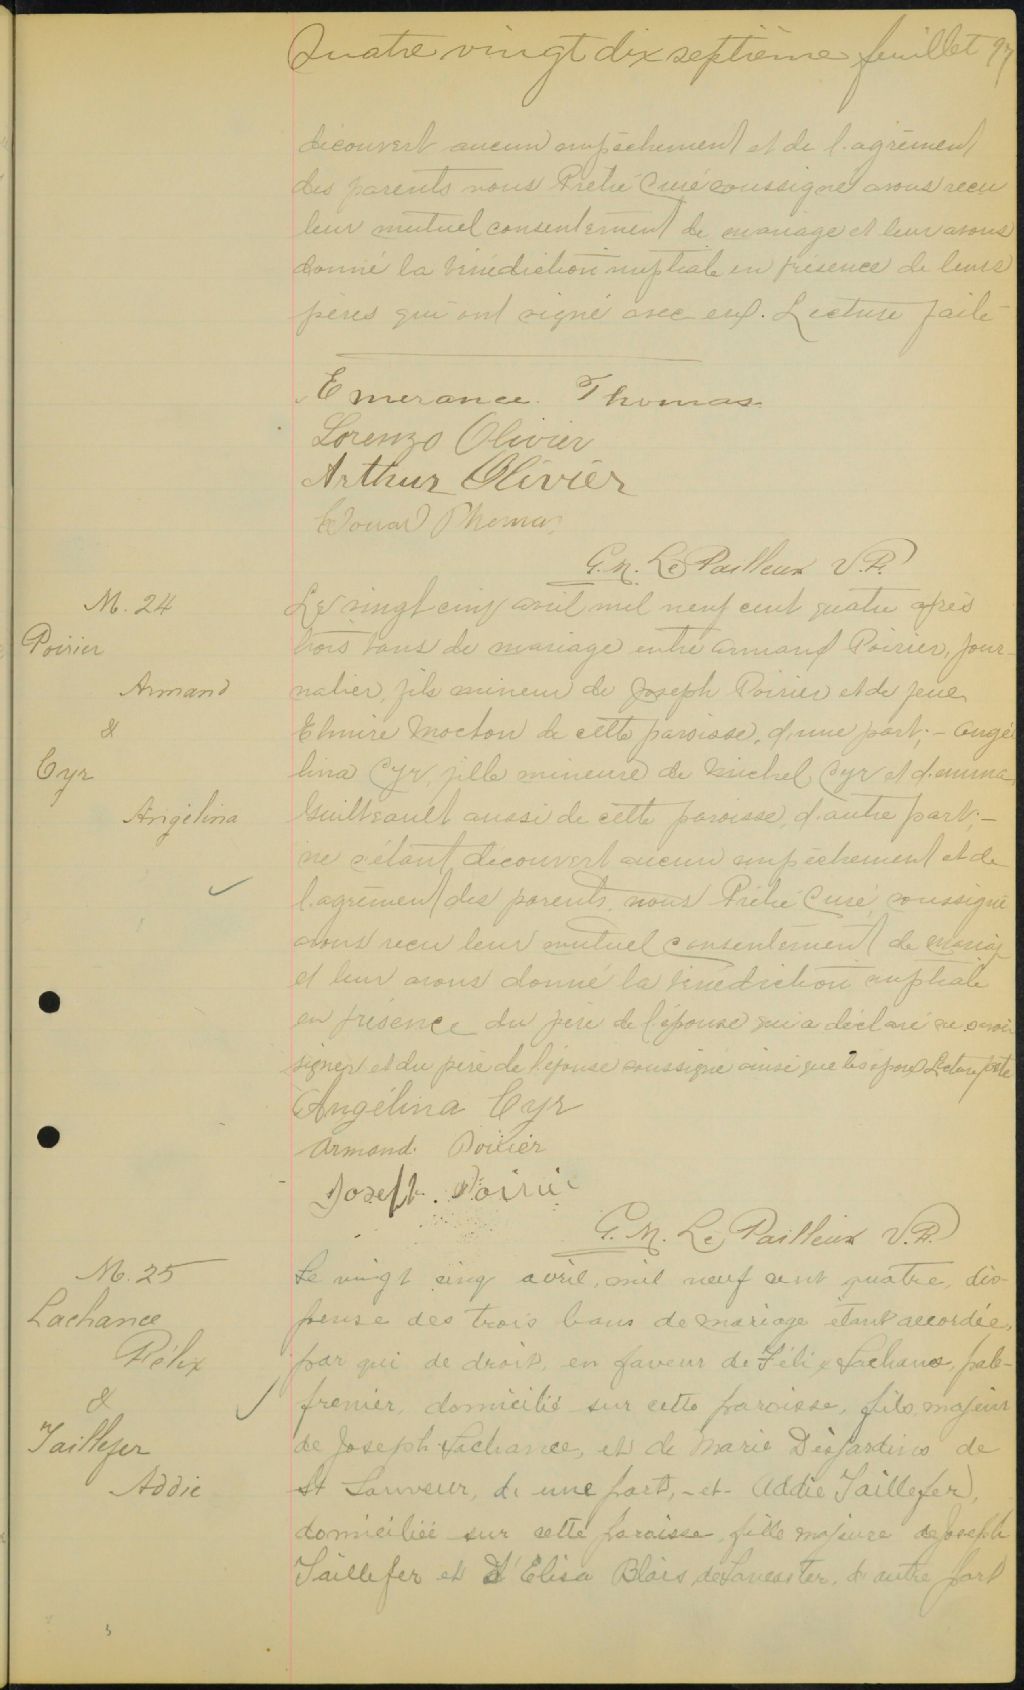 Quatre vingt dix septième feuillet 97
découvert aucun empêchement et de l'agrément
des parents nous Prêtre Curé soussigné avons recu
leur mutuel consentement de mariage et leur avons
donné la bénédiction nuptiale en présence de leurs
pères qui ont signé avec eux. Lecture faite
Emerance. Thomas
Lorenzo Olivier
Arthur Olivier
Edouard Thomas
G. M. Le Pailleur V.F.
M. 24
Poirier
Armand
&
Cyr
Angélina
Le vingt cinq avril mil neuf cent quatre après
trois bans de mariage entre Armand Poirier, jour-
nalier, fils mineur de Joseph Poirier et de feue
Elmire Mocton de cette paroisse, d'une part; - Angé
lina Cyr, fille mineure de Michel Cyr et d'Emma
Guilteault aussi de cette paroisse, d'autre part; -
ne s'étant découvert aucun empêchement et de
l'agrément des parents, nous Prêtre Curé, soussigné
avons recu leur mutuel consentement de mariag
et leur avons donné la bénédiction nuptiale
en présence du père de l'épouse qui a déclaré ne savoir
signer et du père de l'épouse soussigné ainsi que les époux Lecture faite
Angélina Cyr
Armand. Poirier
Joseph. Poirier
G. M. Le Pailleur V.F.
M. 25
Lachance
Félix
&
Taillefer
Addie
Le vingt cinq avril, mil neuf cent quatre, dis-
pense des trois bans de mariage étant accordée,
par qui de droit, en faveur de Félix Lachance, pale-
frenier, domicilié sur cette paroisse, fils majeur
de Joseph Lachance, et de Marie Desjardins de
St Sauveur, d'une part, - et - Addie Taillefer,
domiciliée sur cette paroisse, fille majeure de Joseph
Taillefer et d'Elisa Blais, de Lancaster, d'autre part